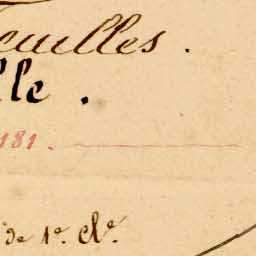 euilles.
lle.
181.
de 1e. cle.